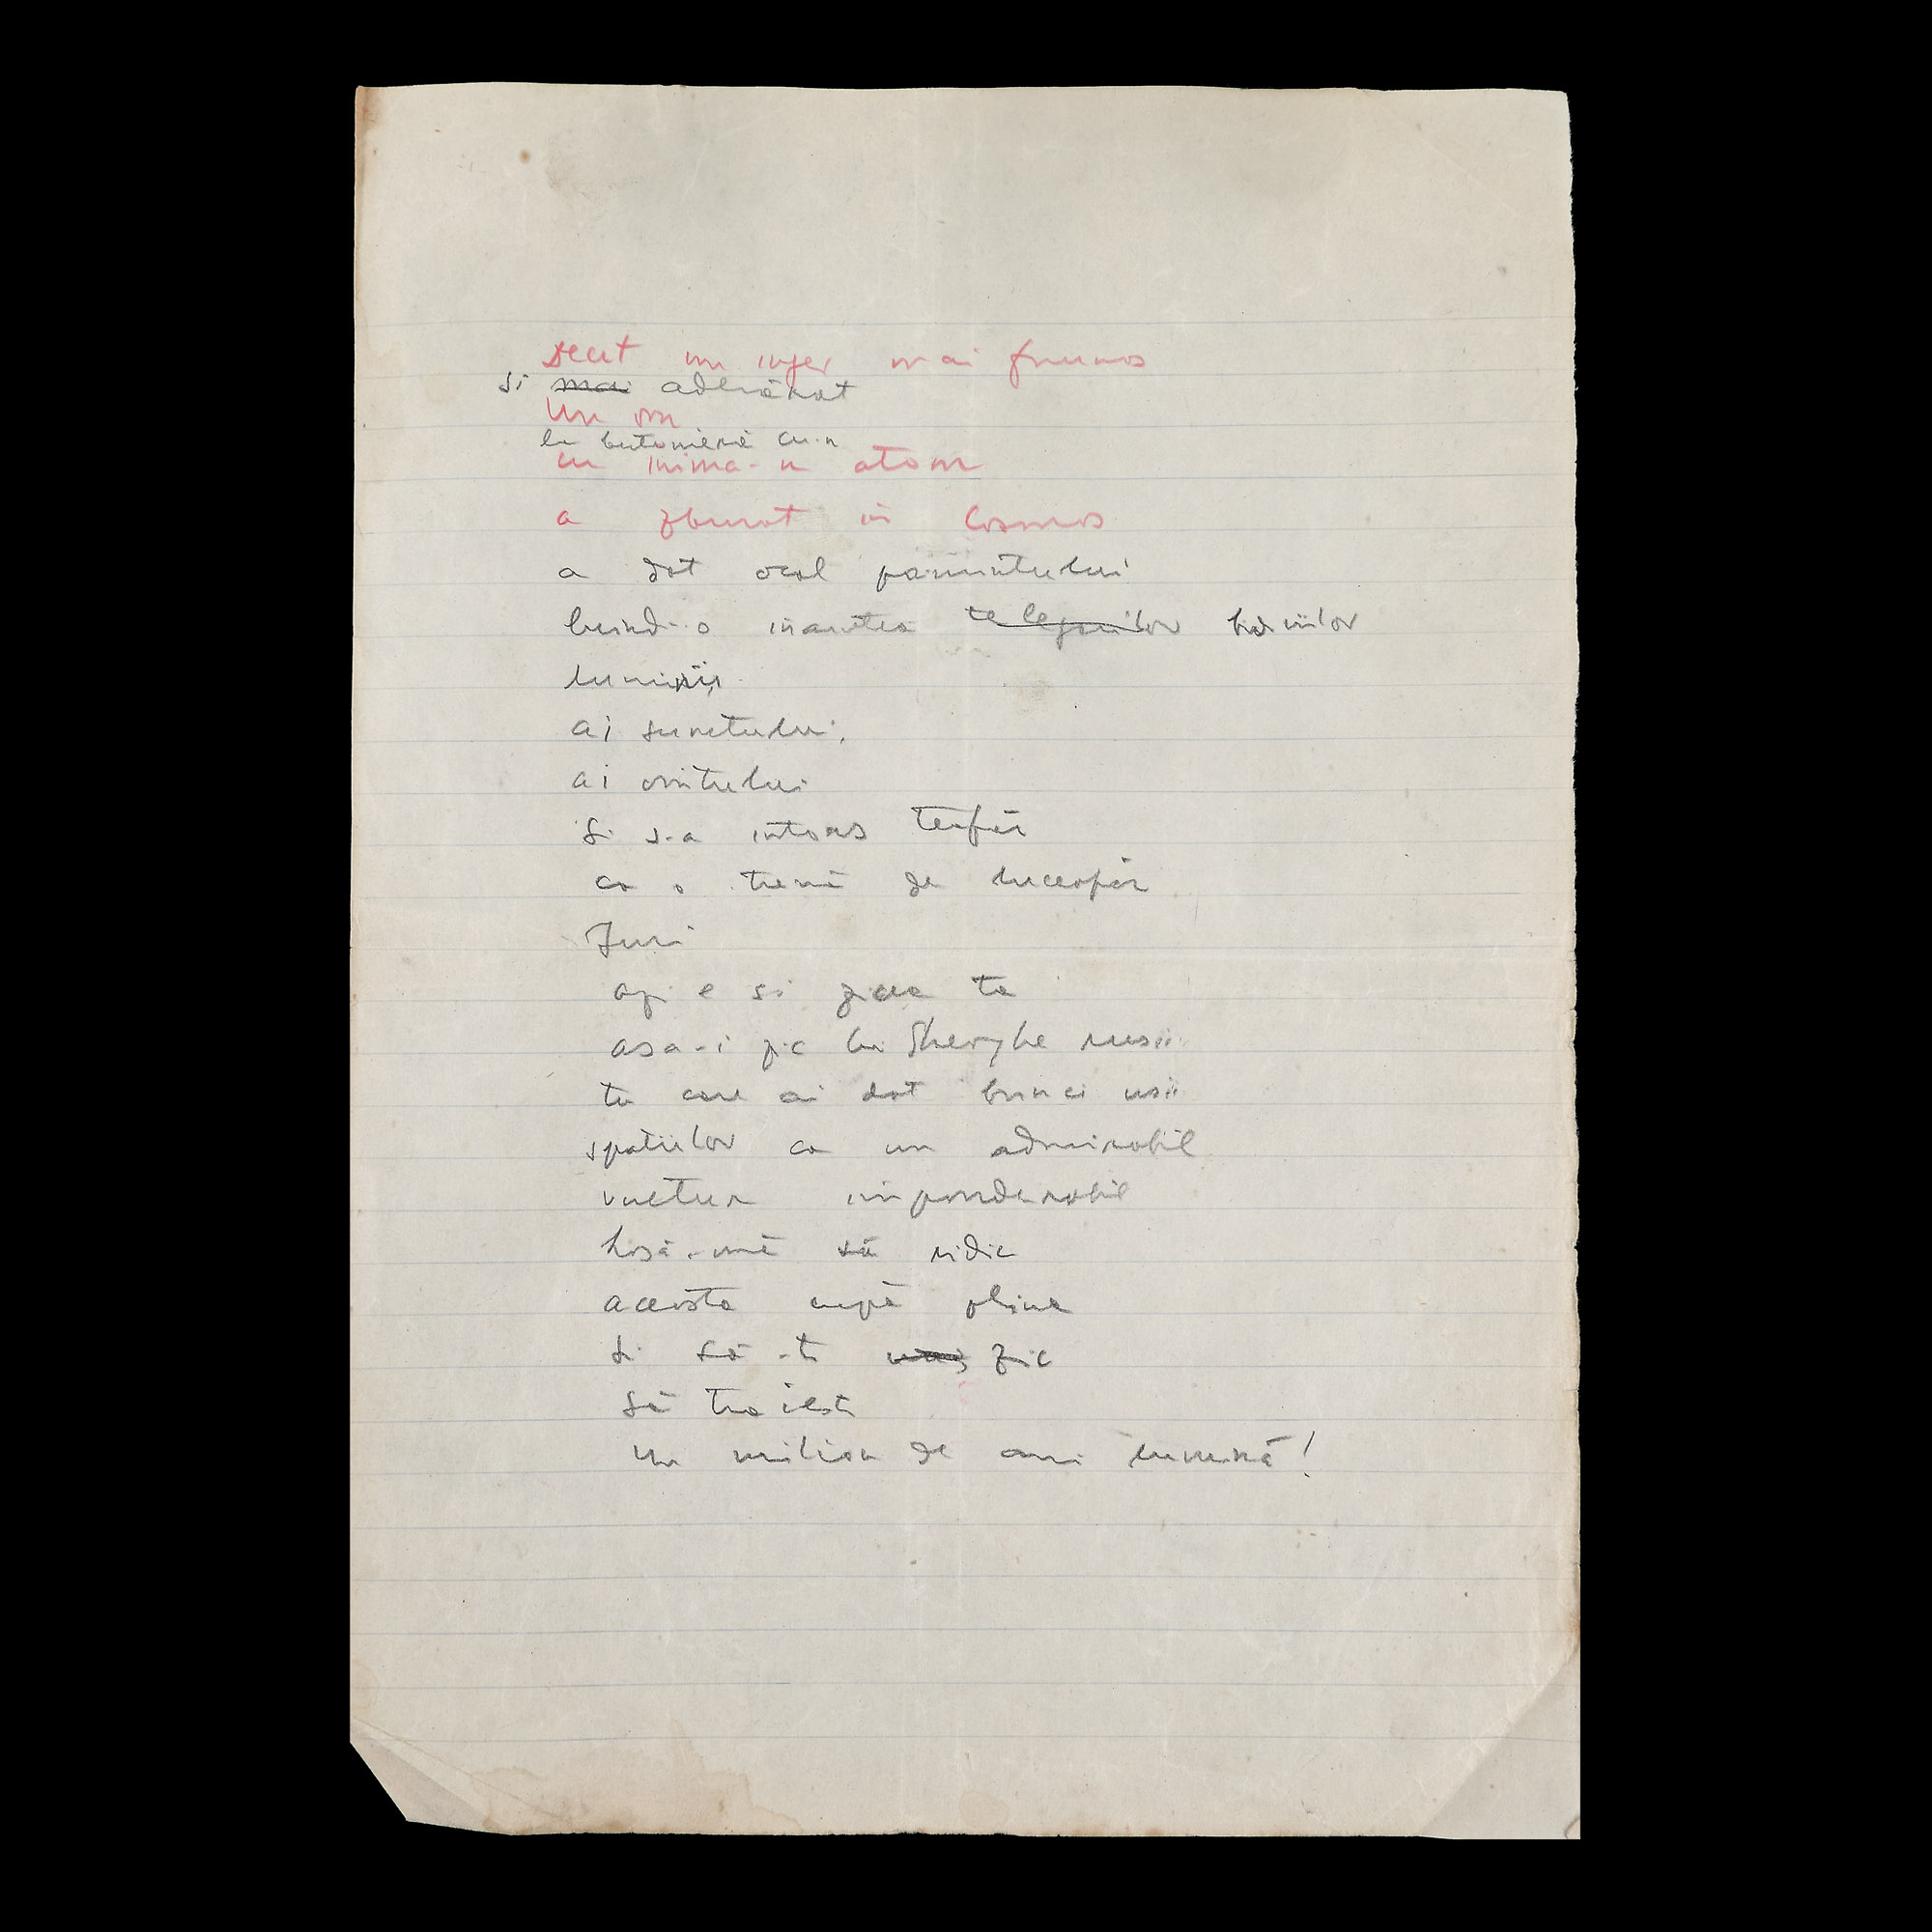 Decit un inger mai frumos
si mai adevărat
Un om
la butonieră cu-n
cu inima-n atom
a zburat in Cosmos
a dat ocol pamintului
luind-o inaintea telegarilor
luminii,
ai sunetului,
ai vintului
Si s-a intors teafăr
ca o trenă de luceafăr
Juri
azi e si ziua ta
asa-i zic lui Gheorghe rusii
tu care ai dat brinci usii
spatiilor ca un admirabil
vultur imponderabil
lasă-mă să ridic
aceasta cupă plina
Si să-ti zic
Să traiesti
un milion de ani lumină!